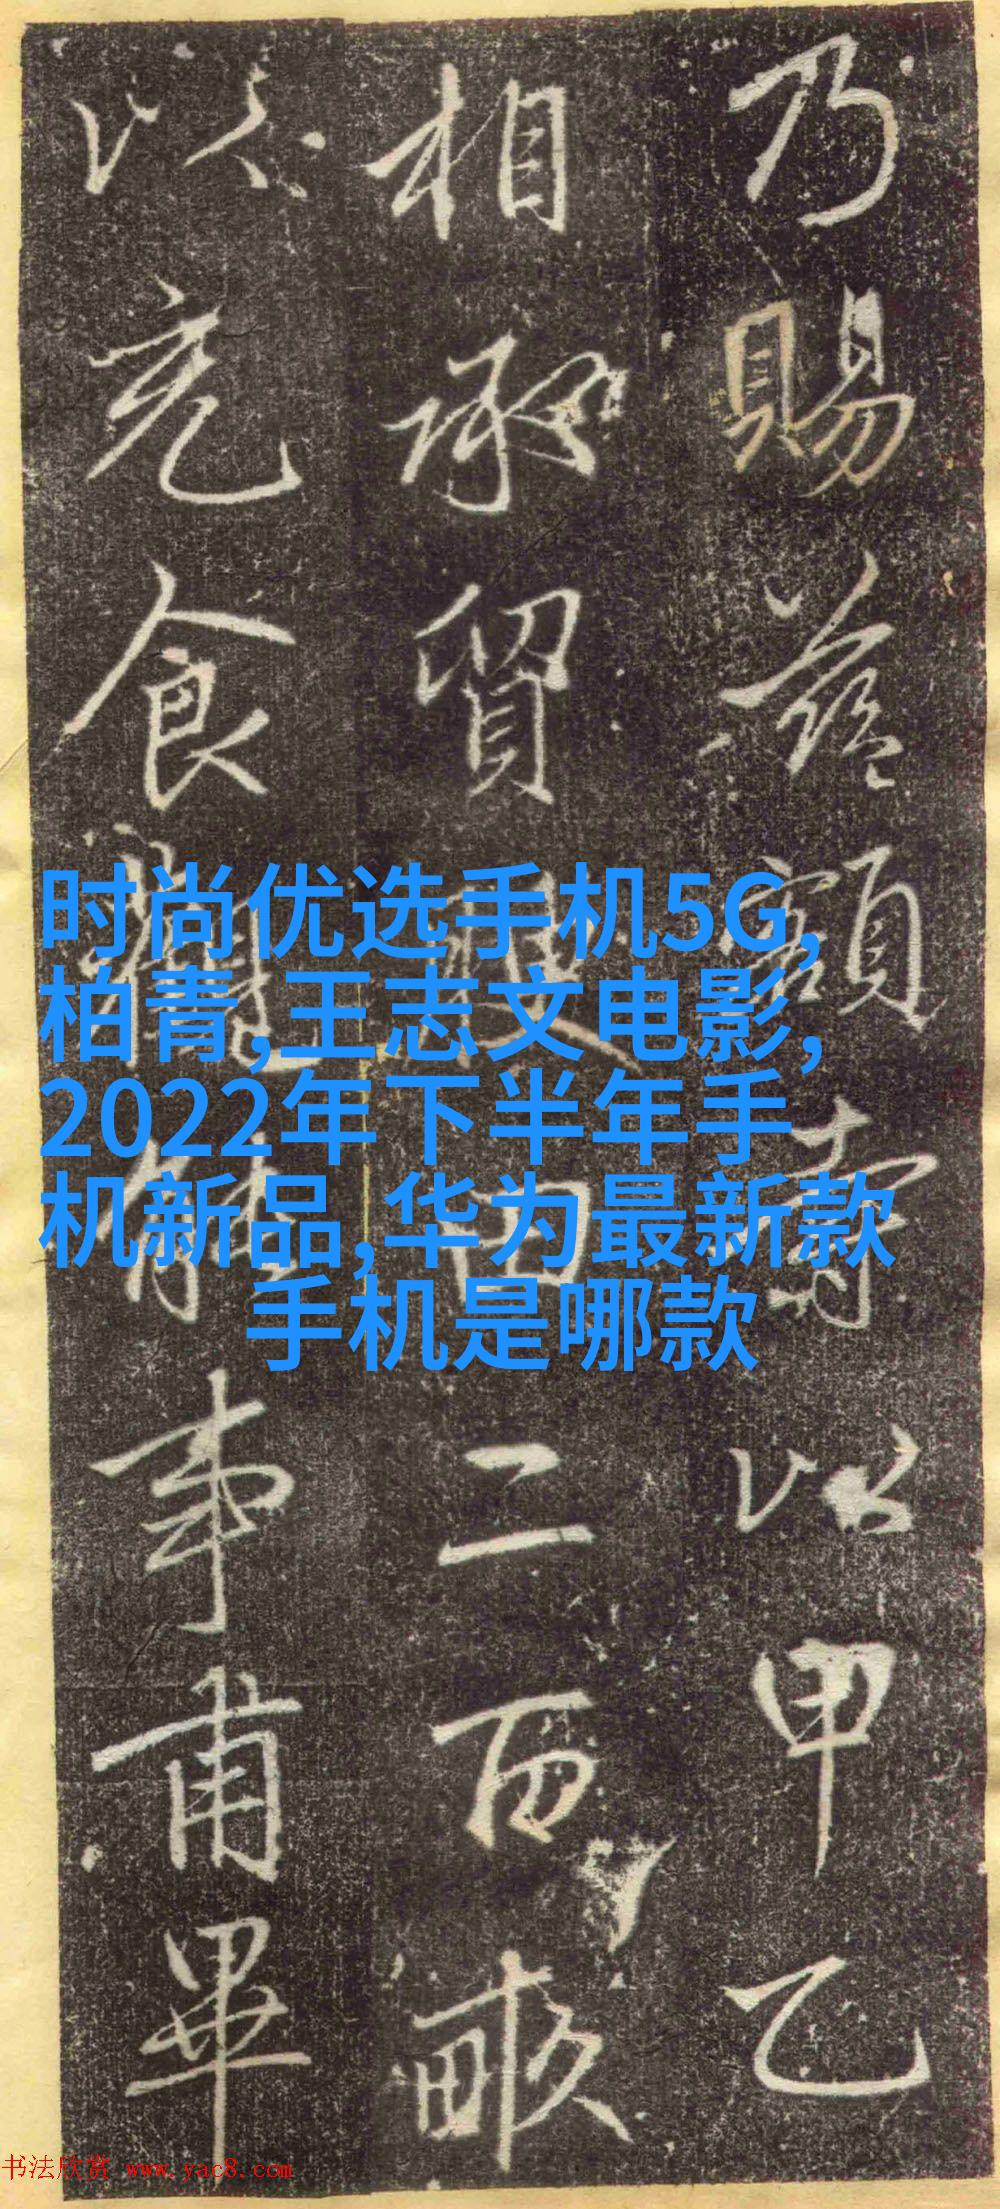 乃賜益額寺以甲乙
相承貿田二百畝
以充食事甫畢
时尚优选手机5G,
柏青,王志文电影,
2022年下半年手
机新品,华为最新款
手机是哪款
书法欣赏 www.yac8.com